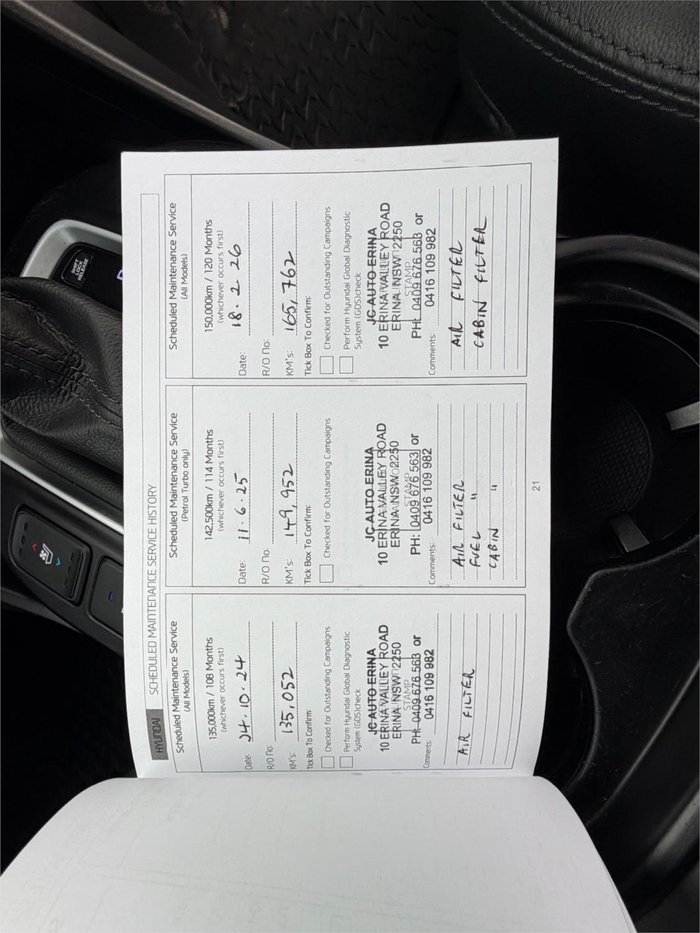 HYUNDAI
SCHEDULED MAINTENANCE SERVICE HISTORY
Scheduled Maintenance Service
(All Models)
135,000km / 108 Months
(whichever occurs first)
Date: 24.10.24
R/O No:
KM's: 135,052
Tick Box To Confirm:
Checked for Outstanding Campaigns
Perform Hyundai Global Diagnostic
System (GDS)check
JC AUTO ERINA
10 ERINA VALLEY ROAD
ERINA NSW 2250
STAMP
PH: 0409 676 563 or
0416 109 982
Comments:
AIR FILTER
Scheduled Maintenance Service
(Petrol Turbo only)
142,500km / 114 Months
(whichever occurs first)
Date: 11.6.25
R/O No:
KM's: 149,952
Tick Box To Confirm:
Checked for Outstanding Campaigns
JC AUTO ERINA
10 ERINA VALLEY ROAD
ERINA NSW 2250
STAMP
PH: 0409 676 563 or
0416 109 982
Comments:
AIR FILTER
FUEL "
CABIN "
Scheduled Maintenance Service
(All Models)
150,000km / 120 Months
(whichever occurs first)
Date: 18.2.26
R/O No:
KM's: 165,762
Tick Box To Confirm:
Checked for Outstanding Campaigns
Perform Hyundai Global Diagnostic
System (GDS)check
JC AUTO ERINA
10 ERINA VALLEY ROAD
ERINA NSW 2250
STAMP
PH: 0409 676 563 or
0416 109 982
Comments:
AIR FILTER
CABIN FILTER
21
SHIFT
LOCK
RELEASE